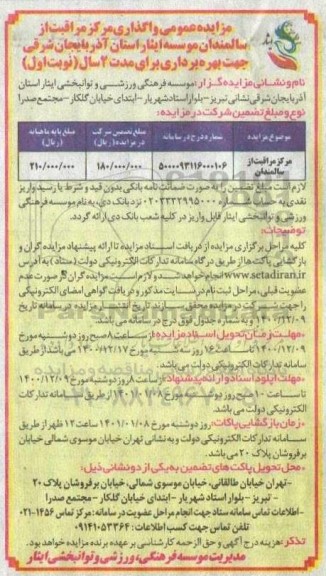 مزایده عمومی واگذاری مرکز مراقبت از
سالمندان موسسه ایثار استان آذربایجان شرقی
جهت بهره برداری برای مدت ۲ سال (نوبت اول)
نام و نشانی مزایده گزار: موسسه فرهنگی ورزشی و توانبخشی ایثار استان
آذربایجان شرقی نشانی تبریز – بلوار استاد شهریار – ابتدای خیابان گلکار – مجتمع صدرا
نوع و مبلغ تضمین شرکت در مزایده:
موضوع مزایده شماره درج در سامانه مبلغ تضمین شرکت در مزایده (ریال) مبلغ پایه ماهیانه (ریال)
مرکز مراقبت از سالمندان ۵۰۰۰۰۹۳۱۱۶۰۰۰۱۰۶ ۱۸۰/۰۰۰/۰۰۰ ۲۱۰/۰۰۰/۰۰۰
لازم است مبلغ تضمین را به صورت ضمانت نامه بانکی بدون قید و شرط یا رسید واریز
نقدی به حساب شماره نزد بانک دی، به نام موسسه فرهنگی
ورزشی و توانبخشی ایثار قابل واریز در کلیه شعب بانک دی ارائه گردد.
توضیحات:
کلیه مراحل برگزاری مزایده از دریافت اسناد مزایده تا ارائه پیشنهاد مزایده گران و
بازگشایی پاکت ها از طریق درگاه سامانه تدارکات الکترونیکی دولت (ستاد) به آدرس
www.setadiran.ir انجام خواهد شد و لازم است مزایده گران در صورت عدم
عضویت قبلی، مراحل ثبت نام در سایت مذکور و دریافت گواهی امضای الکترونیکی
را جهت شرکت در مزایده محقق سازند. تاریخ انتشار مزایده در سامانه تاریخ
۱۴۰۰/۱۲/۰۹ به شماره جدول فوق درج در سامانه می باشد.
-مهلت زمان تحویل اسناد مزایده: از ساعت ۸ صبح روز دوشنبه مورخ
۱۴۰۰/۱۲/۰۹ تا ساعت ۱۶ روز سه شنبه مورخ ۱۴۰۰/۱۲/۱۷ می باشد (از طریق
سامانه تدارکات الکترونیکی دولت می باشد.
-مهلت آپلود اسناد و ارائه پیشنهاد: از ساعت ۸ روز دوشنبه مورخ ۱۴۰۰/۱۲/۰۹
تا ساعت ۱۰ صبح روز دوشنبه مورخ از طریق سامانه تدارکات
الکترونیکی دولت می باشد.
-زمان بازگشایی پاکات: روز دوشنبه مورخ ۱۴۰۱/۰۱/۰۸ ساعت ۱۲ ظهر از طریق
سامانه تدارکات الکترونیکی دولت و به نشانی تهران خیابان موسوی شمالی خیابان
برفروشان پلاک ۲۰ می باشد.
-محل تحویل پاکت های تضمین به یکی از دو نشانی ذیل:
-تهران خیابان طالقانی، خیابان موسوی شمالی، خیابان برفروشان پلاک ۲۰
-تبریز – بلوار استاد شهریار – ابتدای خیابان گلکار – مجتمع صدرا
-اطلاعات تماس سامانه ستاد جهت انجام مراحل عضویت در سامانه: مرکز تماس ۱۴۵۶-۰۲۱
تلفن تماس جهت کسب اطلاعات: ۰۹۱۴۱۰۵۳۳۶۴
تذکر: هزینه درج آگهی و حق الزحمه کارشناسی بر عهده برنده مزایده خواهد بود.
مدیریت موسسه فرهنگی، ورزشی و توانبخشی ایثار